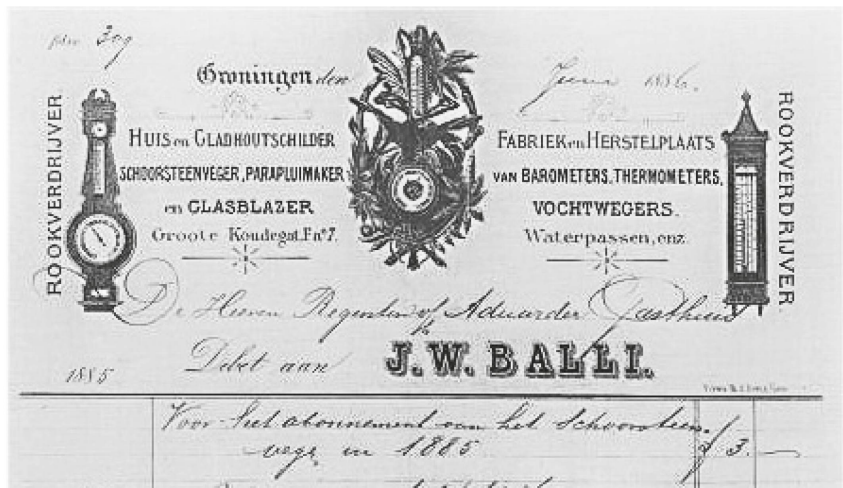 folio 309
Groningen den Juni 1886.
ROOKVERDRIJVER
HUIS en GLADHOUTSCHILDER
SCHOORSTEENVEGER, PARAPLUIMAKER
en GLASBLAZER
Groote Koudegat. F no 7.
FABRIEK en HERSTELPLAATS
van BAROMETERS, THERMOMETERS,
VOCHTWEGERS.
Waterpassen, enz.
ROOKVERDRIJVER.
De Heeren Regenten of Aduarder Gasthuis
1885 Debet aan J.W. BALLI.
Voor het abonnement van het Schoorsteen
vege in 1885 f 3.—